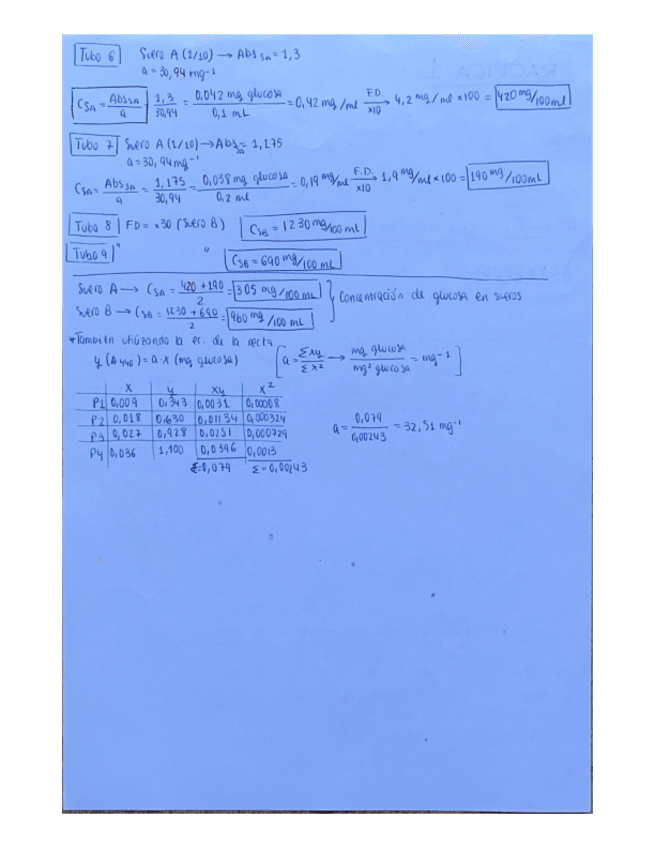 Tubo 6 Suero A (1/10) → Abs SA = 1,3
a = 30,94 mg⁻¹
C SA = Abs SA / a = 1,3 / 30,94 = 0,042 mg glucosa / 0,1 mL = 0,42 mg/ml F.D. → x10 4,2 mg/ml x100 = 420 mg/100ml
Tubo 7 Suero A (1/10) → Abs SA = 1,175
a = 30,94 mg⁻¹
C SA = Abs SA / a = 1,175 / 30,94 = 0,038 mg glucosa / 0,2 ml = 0,19 mg/ml F.D. → x10 1,9 mg/ml x100 = 190 mg/100ml
Tubo 8 FD = x30 (Suero B) C SB = 1230 mg/100 mL
Tubo 9 " " C SB = 690 mg/100 mL
Suero A → C SA = 420 + 190 / 2 = 305 mg/100 mL
Suero B → C SB = 1230 + 690 / 2 = 960 mg/100 mL } Concentración de glucosa en sueros
* También utilizando la ec. de la recta
y (A₄₄₀) = a · x (mg glucosa) [ a = Σxy / Σx² → mg glucosa / mg² glucosa = mg⁻¹ ]
x y xy x²
P1 0,009 0,343 0,0031 0,00008
P2 0,018 0,630 0,01134 0,000324
P3 0,027 0,928 0,0251 0,000729
P4 0,036 1,100 0,0396 0,0013
Σ=0,079 Σ=0,00243
a = 0,079 / 0,00243 = 32,51 mg⁻¹